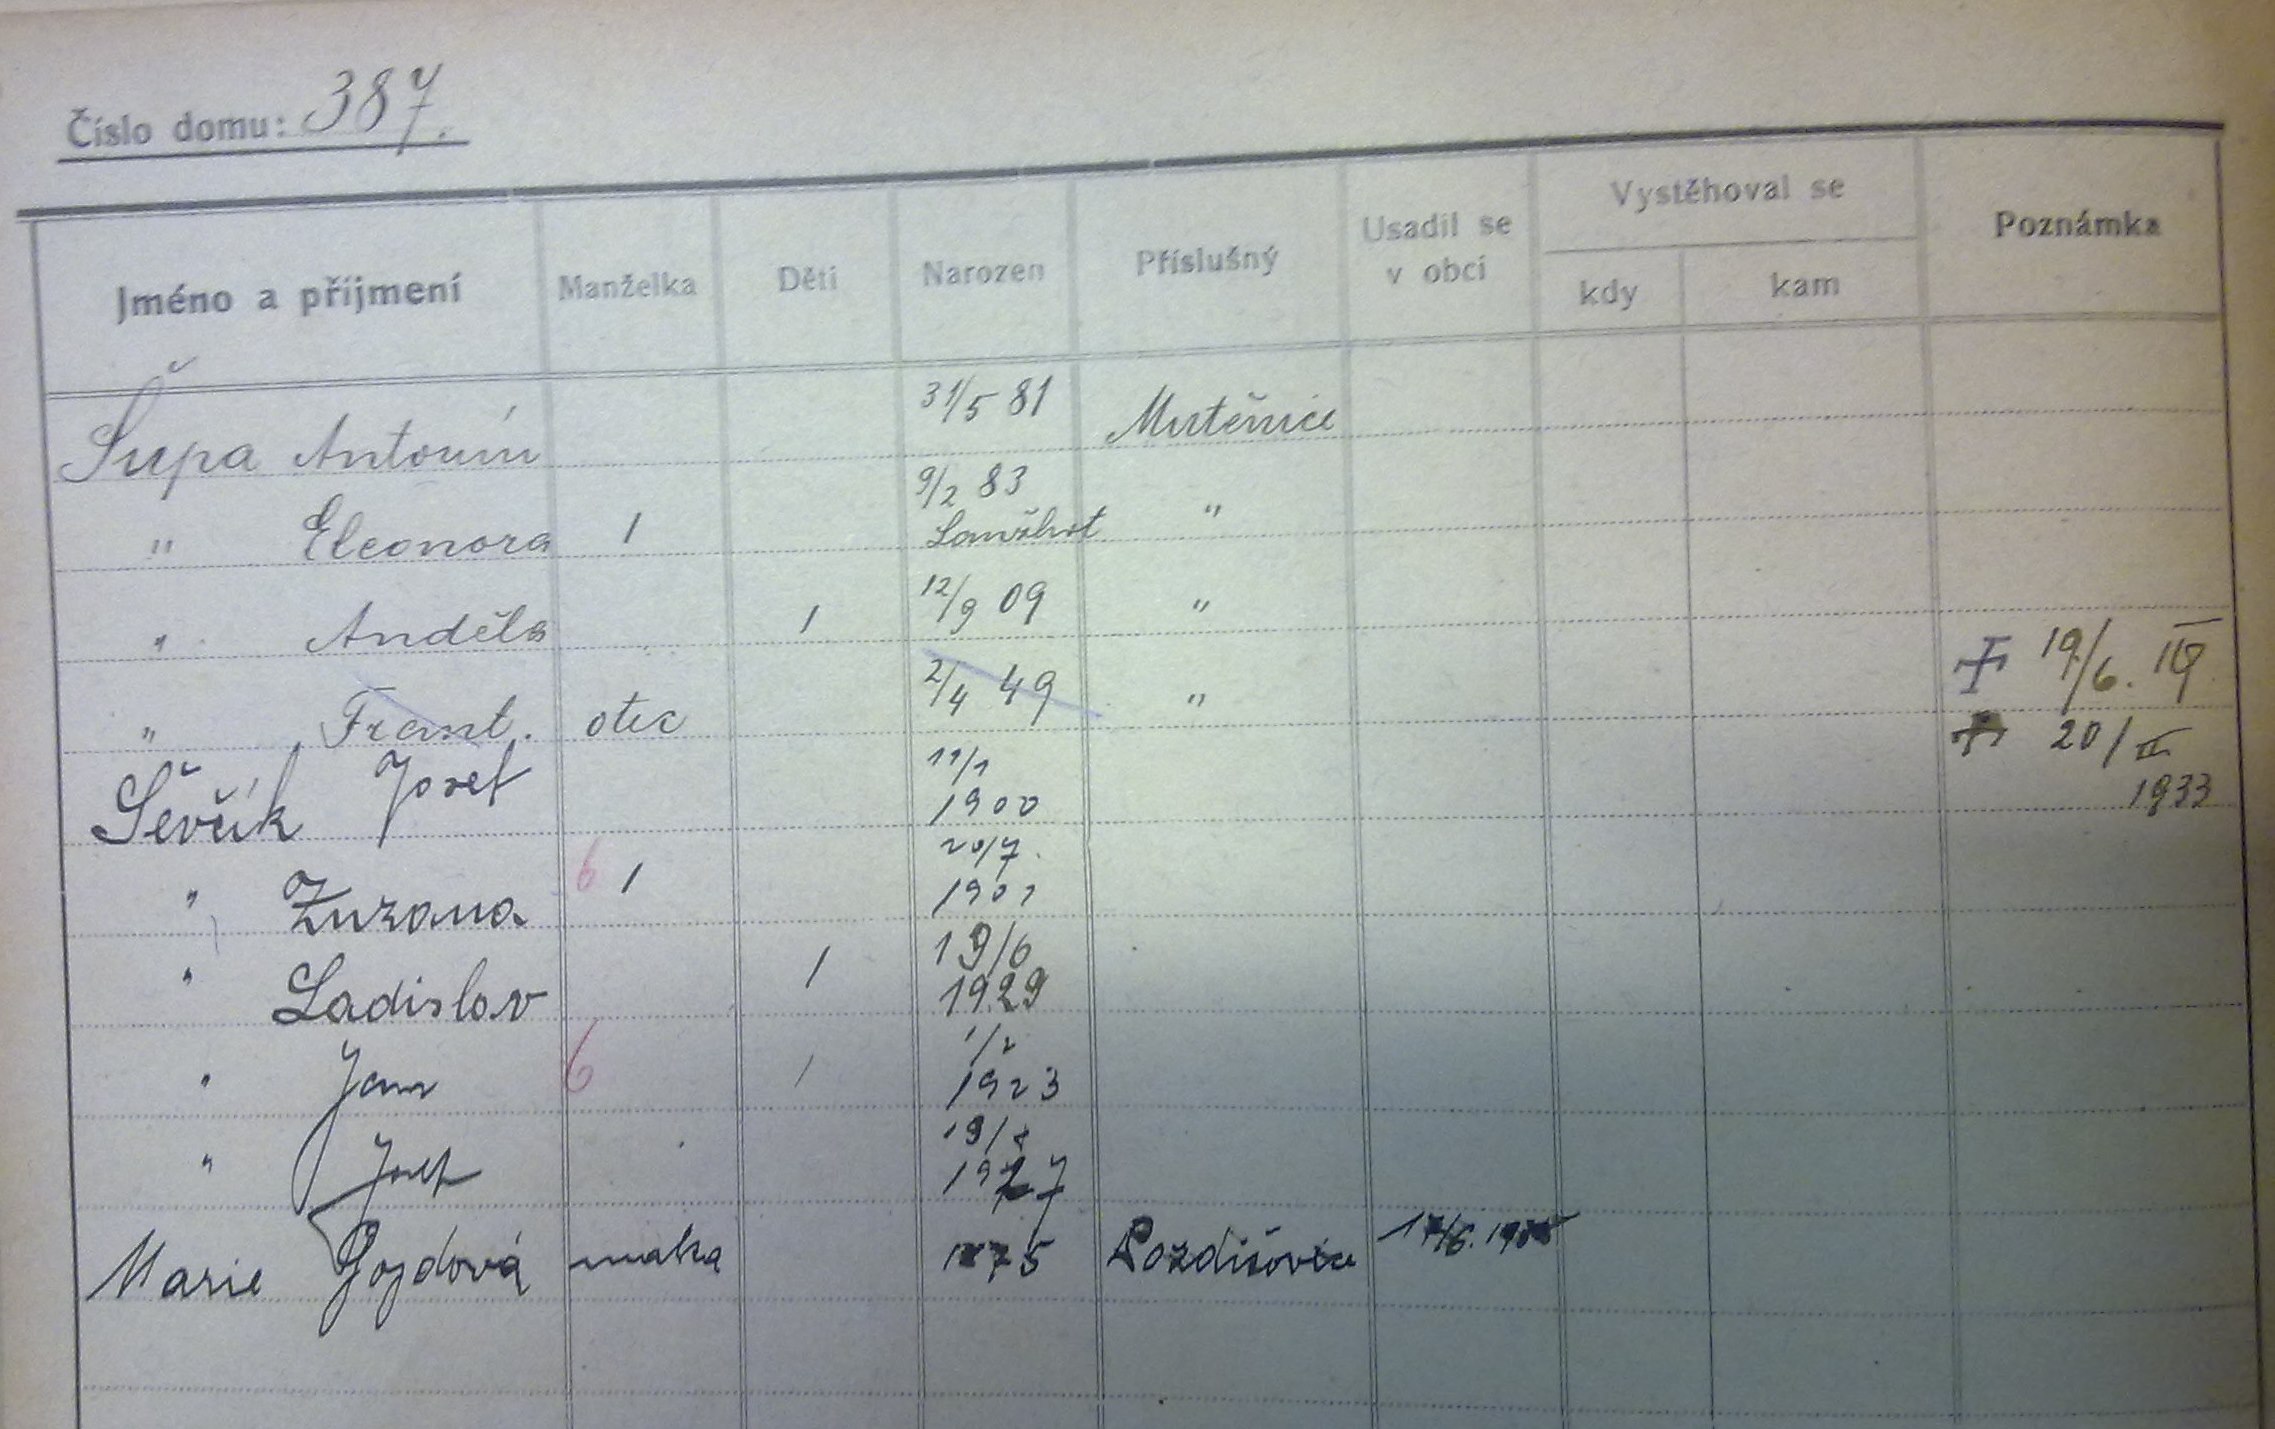 Číslo domu: 387.
Jméno a příjmení Manželka Děti Narozen Příslušný Usadil se v obci Vystěhoval se kdy kam Poznámka
Šupa Antonín 31/5 81 Mutěnice
" Eleonora 1 9/2 83 Lanžhot "
" Anděla 1 12/9 09 "
" Frant. otec 2/4 49 " 19/6.
Ševčík Josef 11/1 1900 20/III 1933
" Zuzana 6 1 20/7. 1901
" Ladislav 1 19/6 1929
" Jan 6 1 1/2 1923
" Josef 19/8 1927
Marie Gojdová matka 1875 17/6.